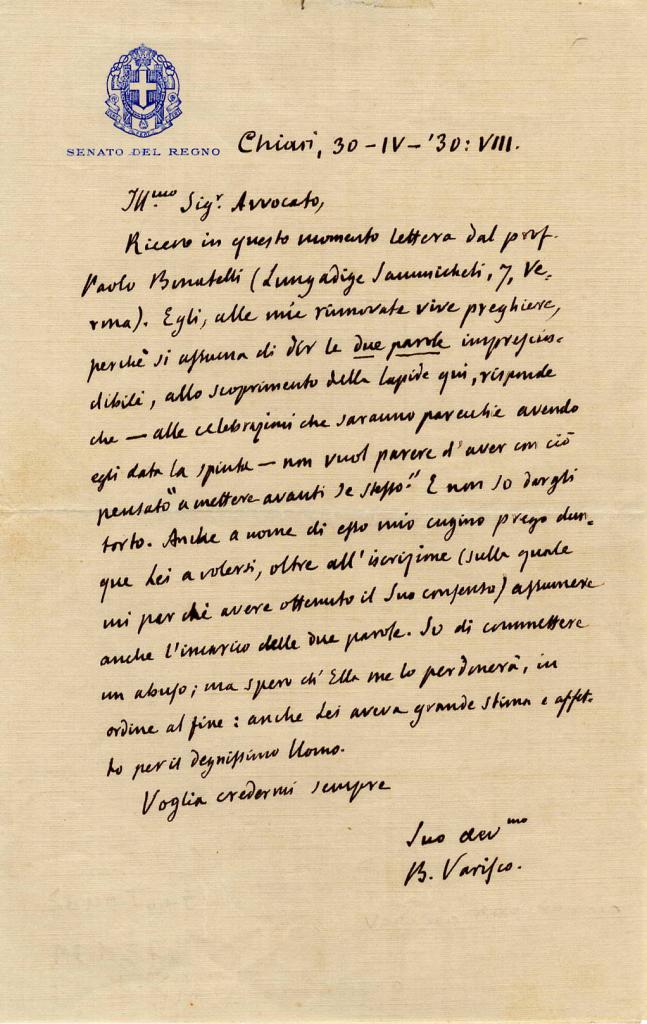 SENATO DEL REGNO
Chiari, 30-IV-'30: VIII.
Ill.mo Sigr. Avvocato,
Ricevo in questo momento lettera dal prof.
Paolo Bonatelli (Lungadige Sammicheli, 7, Ve-
rona). Egli, alle mie rinnovate vive preghiere,
perchè si assuma di dir le due parole imprescin-
dibili, allo scoprimento della lapide qui, risponde
che — alle celebrazioni che saranno parecchie avendo
egli data la spinta — non vuol parere d'aver con ciò
pensato "a mettere avanti se stesso." E non so dargli
torto. Anche a nome di esso mio cugino prego dun-
que Lei a volersi, oltre all'iscrizione (sulla quale
mi par che avere ottenuto il Suo consenso) assumere
anche l'incarico delle due parole. So di commettere
un abuso; ma spero ch'Ella me lo perdonerà, in
ordine al fine: anche Lei aveva grande stima e affet-
to per il degnissimo Uomo.
Voglia credermi sempre
Suo dev.mo
B. Varisco.